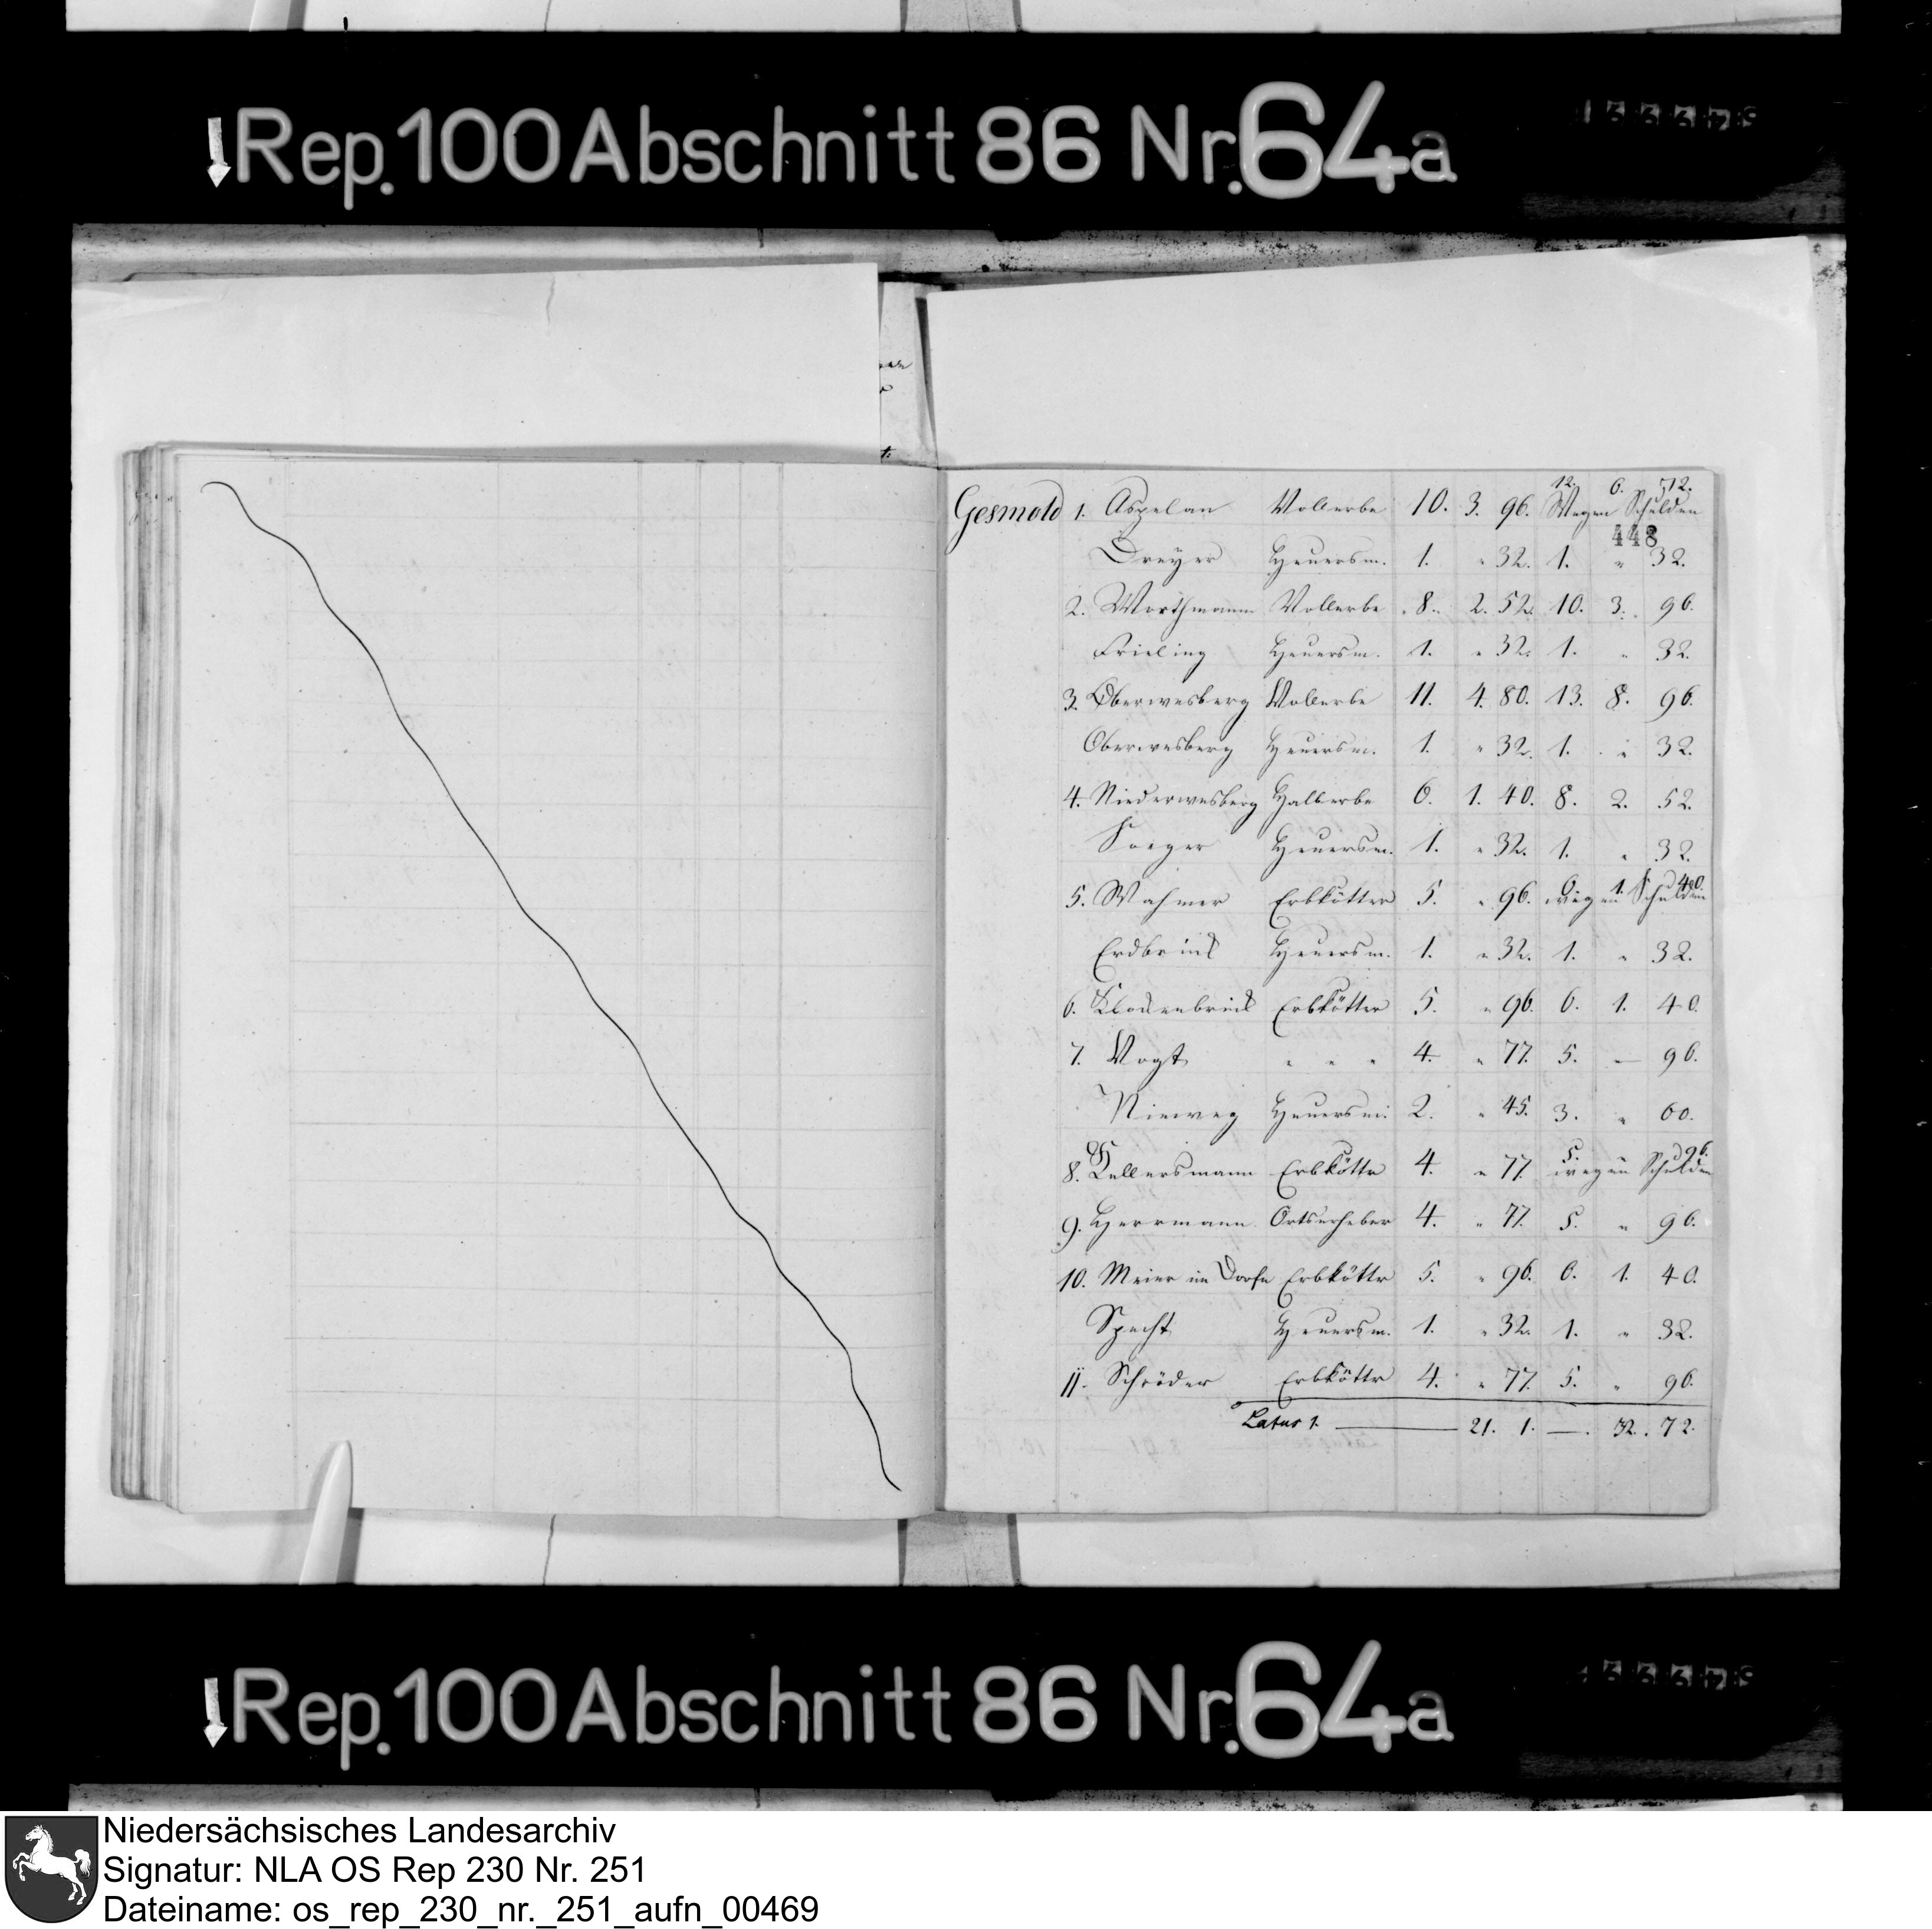 Rep. 100 Abschnitt 86 Nr. 64a
Gesmold 1. Aspelan Vollerbe 10. 3. 96. 12. 6. 512. Wegen Schulden
448
Dreÿer Heuersm. 1. " 32. 1. " 32.
2. Worthmann Vollerbe 8. 2. 52. 10. 3. 96.
Frieling Heuersm. 1. " 32. 1. " 32.
3. Oberwesberg Vollerbe 11. 4. 80. 13. 8. 96.
Oberwesberg Heuersm. 1. " 32. 1. " 32.
4. Niederwesberg Halberbe 6. 1. 40. 8. 2. 52.
Soeger Heuersm. 1. " 32. 1. " 32.
5. Wahmer Erbkötter 5. " 96. 6. 1. 40. wegen Schulden
Erdbrink Heuersm. 1. " 32. 1. " 32.
6. Klockenbrink Erbkötter 5. " 96. 6. 1. 40.
7. Vogt " " " 4. " 77. 5. — 96.
Nieweg Heuersm. 2. " 45. 3. " 60.
8. Kellersmann Erbkötter 4. " 77. 5. " 96. wegen Schulden
9. Herrmann Ortserheber 4. " 77. 5. " 96.
10. Meier im Dorfe Erbkötter 5. " 96. 6. 1. 40.
Specht Heuersm. 1. " 32. 1. " 32.
11. Schröder Erbkötter 4. " 77. 5. " 96.
Latus 1. — 21. 1. — 32. 72.
Rep. 100 Abschnitt 86 Nr. 64a
Niedersächsisches Landesarchiv
Signatur: NLA OS Rep 230 Nr. 251
Dateiname: os_rep_230_nr._251_aufn_00469